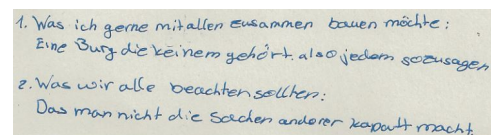 1. Was ich gerne mit allen zusammen bauen möchte:
Eine Burg die keinem gehört. also jedem sozusagen
2. Was wir alle beachten sollten:
Das man nicht die Sachen anderer kaputt macht.